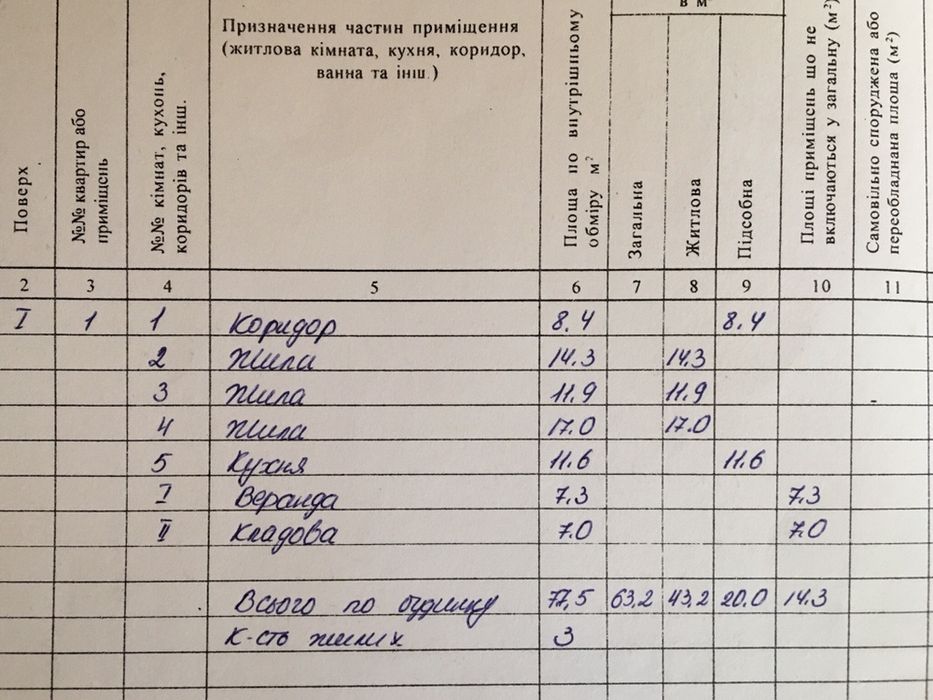 в м²
Поверх
№№ квартир або
приміщень
№№ кімнат, кухонь,
коридорів та інш.
Призначення частин приміщення
(житлова кімната, кухня, коридор,
ванна та інш.)
Площа по внутрішньому
обміру м²
Загальна
Житлова
Підсобна
Площі приміщень що не
включаються у загальну (м²)
Самовільно споруджена або
переобладнана площа (м²)
2 3 4 5 6 7 8 9 10 11
I 1 1 Коридор 8.4 8.4
2 Жила 14.3 14.3
3 Жила 11.9 11.9
4 Жила 17.0 17.0
5 Кухня 11.6 11.6
I Веранда 7.3 7.3
II Кладова 7.0 7.0
Всього по будинку 77,5 63,2 43,2 20.0 14.3
К-сть жилих 3